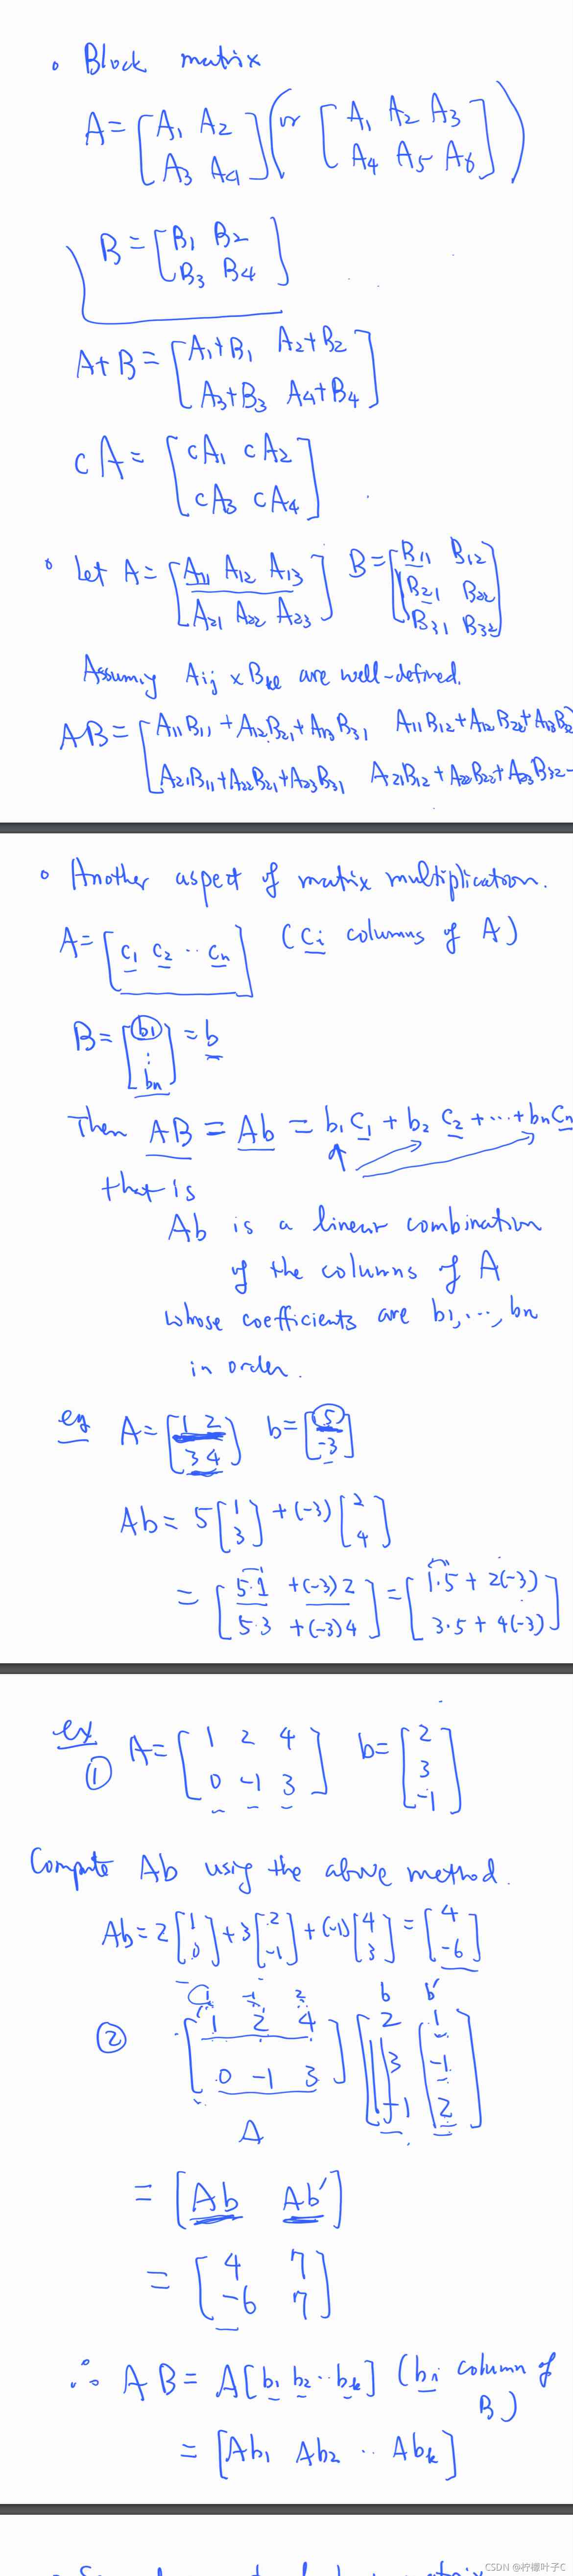 • Block matrix
A = [A1 A2 (or [A1 A2 A3
A3 A4] A4 A5 A6])
B = [B1 B2
B3 B4]
A+B = [A1+B1 A2+B2
A3+B3 A4+B4]
cA = [cA1 cA2
cA3 cA4]
• Let A = [A11 A12 A13 B = [B11 B12
A21 A22 A23] B21 B22
B31 B32]
Assuming Aij × Bkl are well-defined.
AB = [A11B11 + A12B21 + A13B31 A11B12 + A12B22 + A13B32
A21B11 + A22B21 + A23B31 A21B12 + A22B22 + A23B32
• Another aspect of matrix multiplication.
A = [c1 c2 ·· cn] (ci columns of A)
B = [b1
⋮ = b
bn]
Then AB = Ab = b1c1 + b2 c2 + ··· + bn cn
that is
Ab is a linear combination
of the columns of A
whose coefficients are b1, ···, bn
in order.
eg A = [1 2 b = [5
3 4] -3]
Ab = 5 [1 + (-3) [2
3] 4]
= [5·1 + (-3)2 = [1·5 + 2(-3)
5·3 + (-3)4] 3·5 + 4(-3)]
ex
① A = [1 2 4 b = [2
0 -1 3] 3
-1]
Compute Ab using the above method.
Ab = 2 [1 + 3 [2 + (-1) [4 = [4
0] -1] 3] -6]
1 -1 2 b b′
② [1 2 4 [2 1
0 -1 3] 3 -1
A -1 2]
= [Ab Ab′]
= [4 7
-6 7]
∴ AB = A[b1 b2 ·· bk] (bi column of
B)
= [Ab1 Ab2 ·· Abk]
CSDN @柠檬叶子C